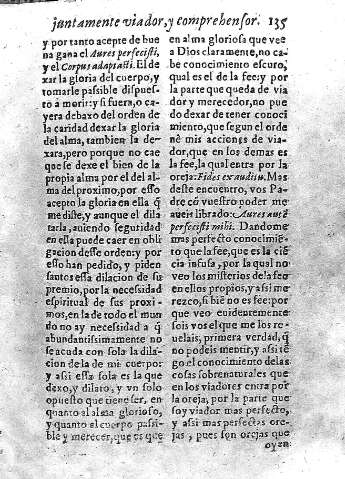 juntamente viador, y comprehensor. 135
y por tanto acepte de bue
na gana el Aures perfecisti,
y el Corpus adaptasti. El de
xar la gloria del cuerpo, y
tomarle passible dispues-
to à morir: y si fuera, o ca-
yera debaxo del orden de
la caridad dexar la gloria
del alma, tambien la de-
xara, pero porque no cae
que se dexe el bien de la
propia alma por el del al-
ma del proximo, por esso
acepto la gloria en ella q̃
me diste, y aunque el dila
tarla, auiendo seguridad
en ella puede caer en obli
gacion desse orden: y por
esso han pedido, y piden
santos essa dilacion de su
premio, por la necessidad
espiritual de sus proxi-
mos, en la de todo el mun
do no ay necessidad a q̃
abundantissimamente no
se acuda con sola la dila-
cion de la de mi cuerpo:
y assi essa sola es la que
dexo, y dilato, y vn solo
opuesto que tiene ser, en
quanto al alma glorioso,
y quanto el cuerpo passi-
ble y merecer, que es que
en alma gloriosa que vee
a Dios claramente, no ca-
be conocimiento escuro,
qual es el de la fee: y por
la parte que queda de via-
dor y merecedor, no pue
do dexar de tener conoci
miento, que segun el orde
nè mis acciones de via-
dor, que en los demas es
la fee, la qual entra por la
oreja: Fides ex auditu. Mas
deste encuentro, vos Pa-
dre cõ vuestro poder me
aueis librado: Aures autẽ
perfecisti mihi. Dandome
mas perfecto conocimiẽ-
to que la fee, que es la ciẽ
cia infusa, por la qual no
veo los misterios de la fee
en ellos propios, y assi me
rezco, si biẽ no es fee: por
que veo euidentemente
sois vos el que me los re-
uelais, primera verdad, q̃
no podeis mentir, y assi tẽ
go el conocimiento de las
cosas sobrenaturales que
en los viadores entra por
la oreja, por la parte que
soy viador mas perfecto,
y assi mas perfectas ore-
jas, pues son orejas que
oyen